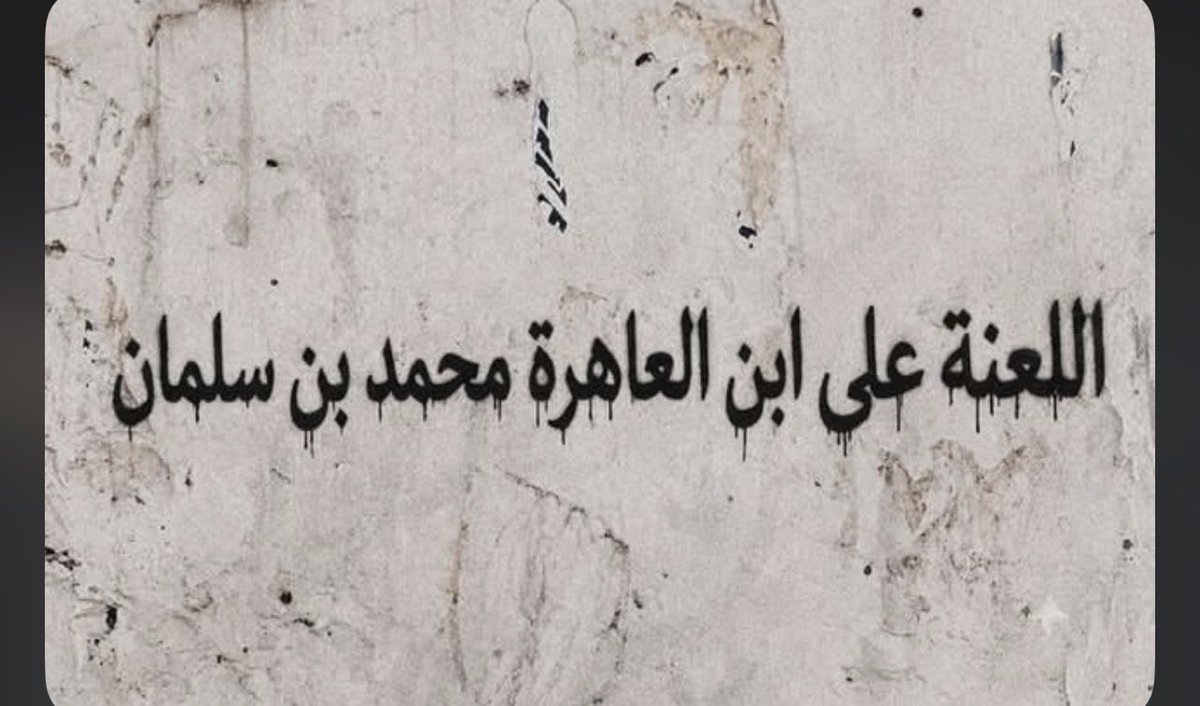 اللعنة على ابن العاهرة محمد بن سلمان